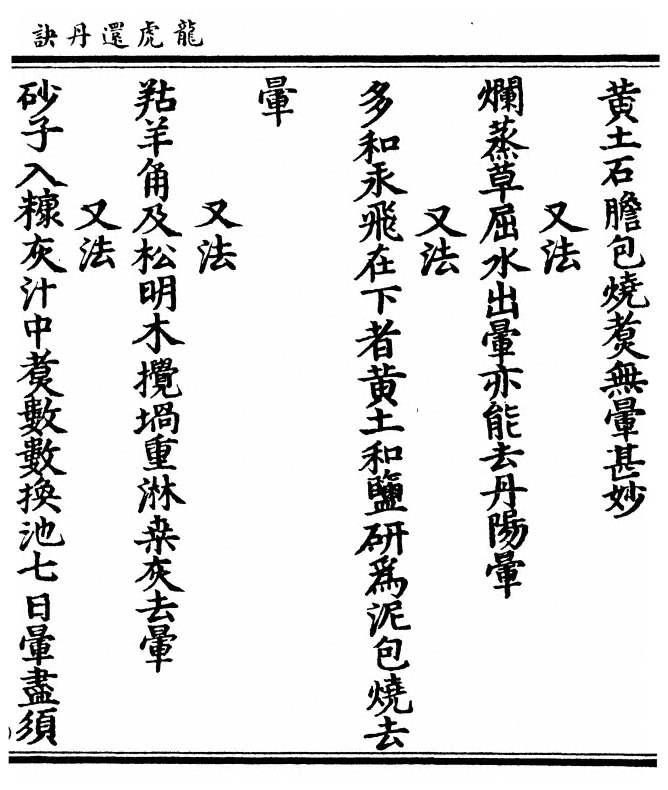 龍虎還丹訣
黃土石膽包燒煑無暈甚妙
又法
爛蒸草屈水出暈亦能去丹陽暈
又法
多和汞飛在下者黃土和鹽研爲泥包燒去
暈
又法
羖羊角及松明木攪堝重淋桒灰去暈
又法
砂子入糠灰汁中煑數數換池七日暈盡須